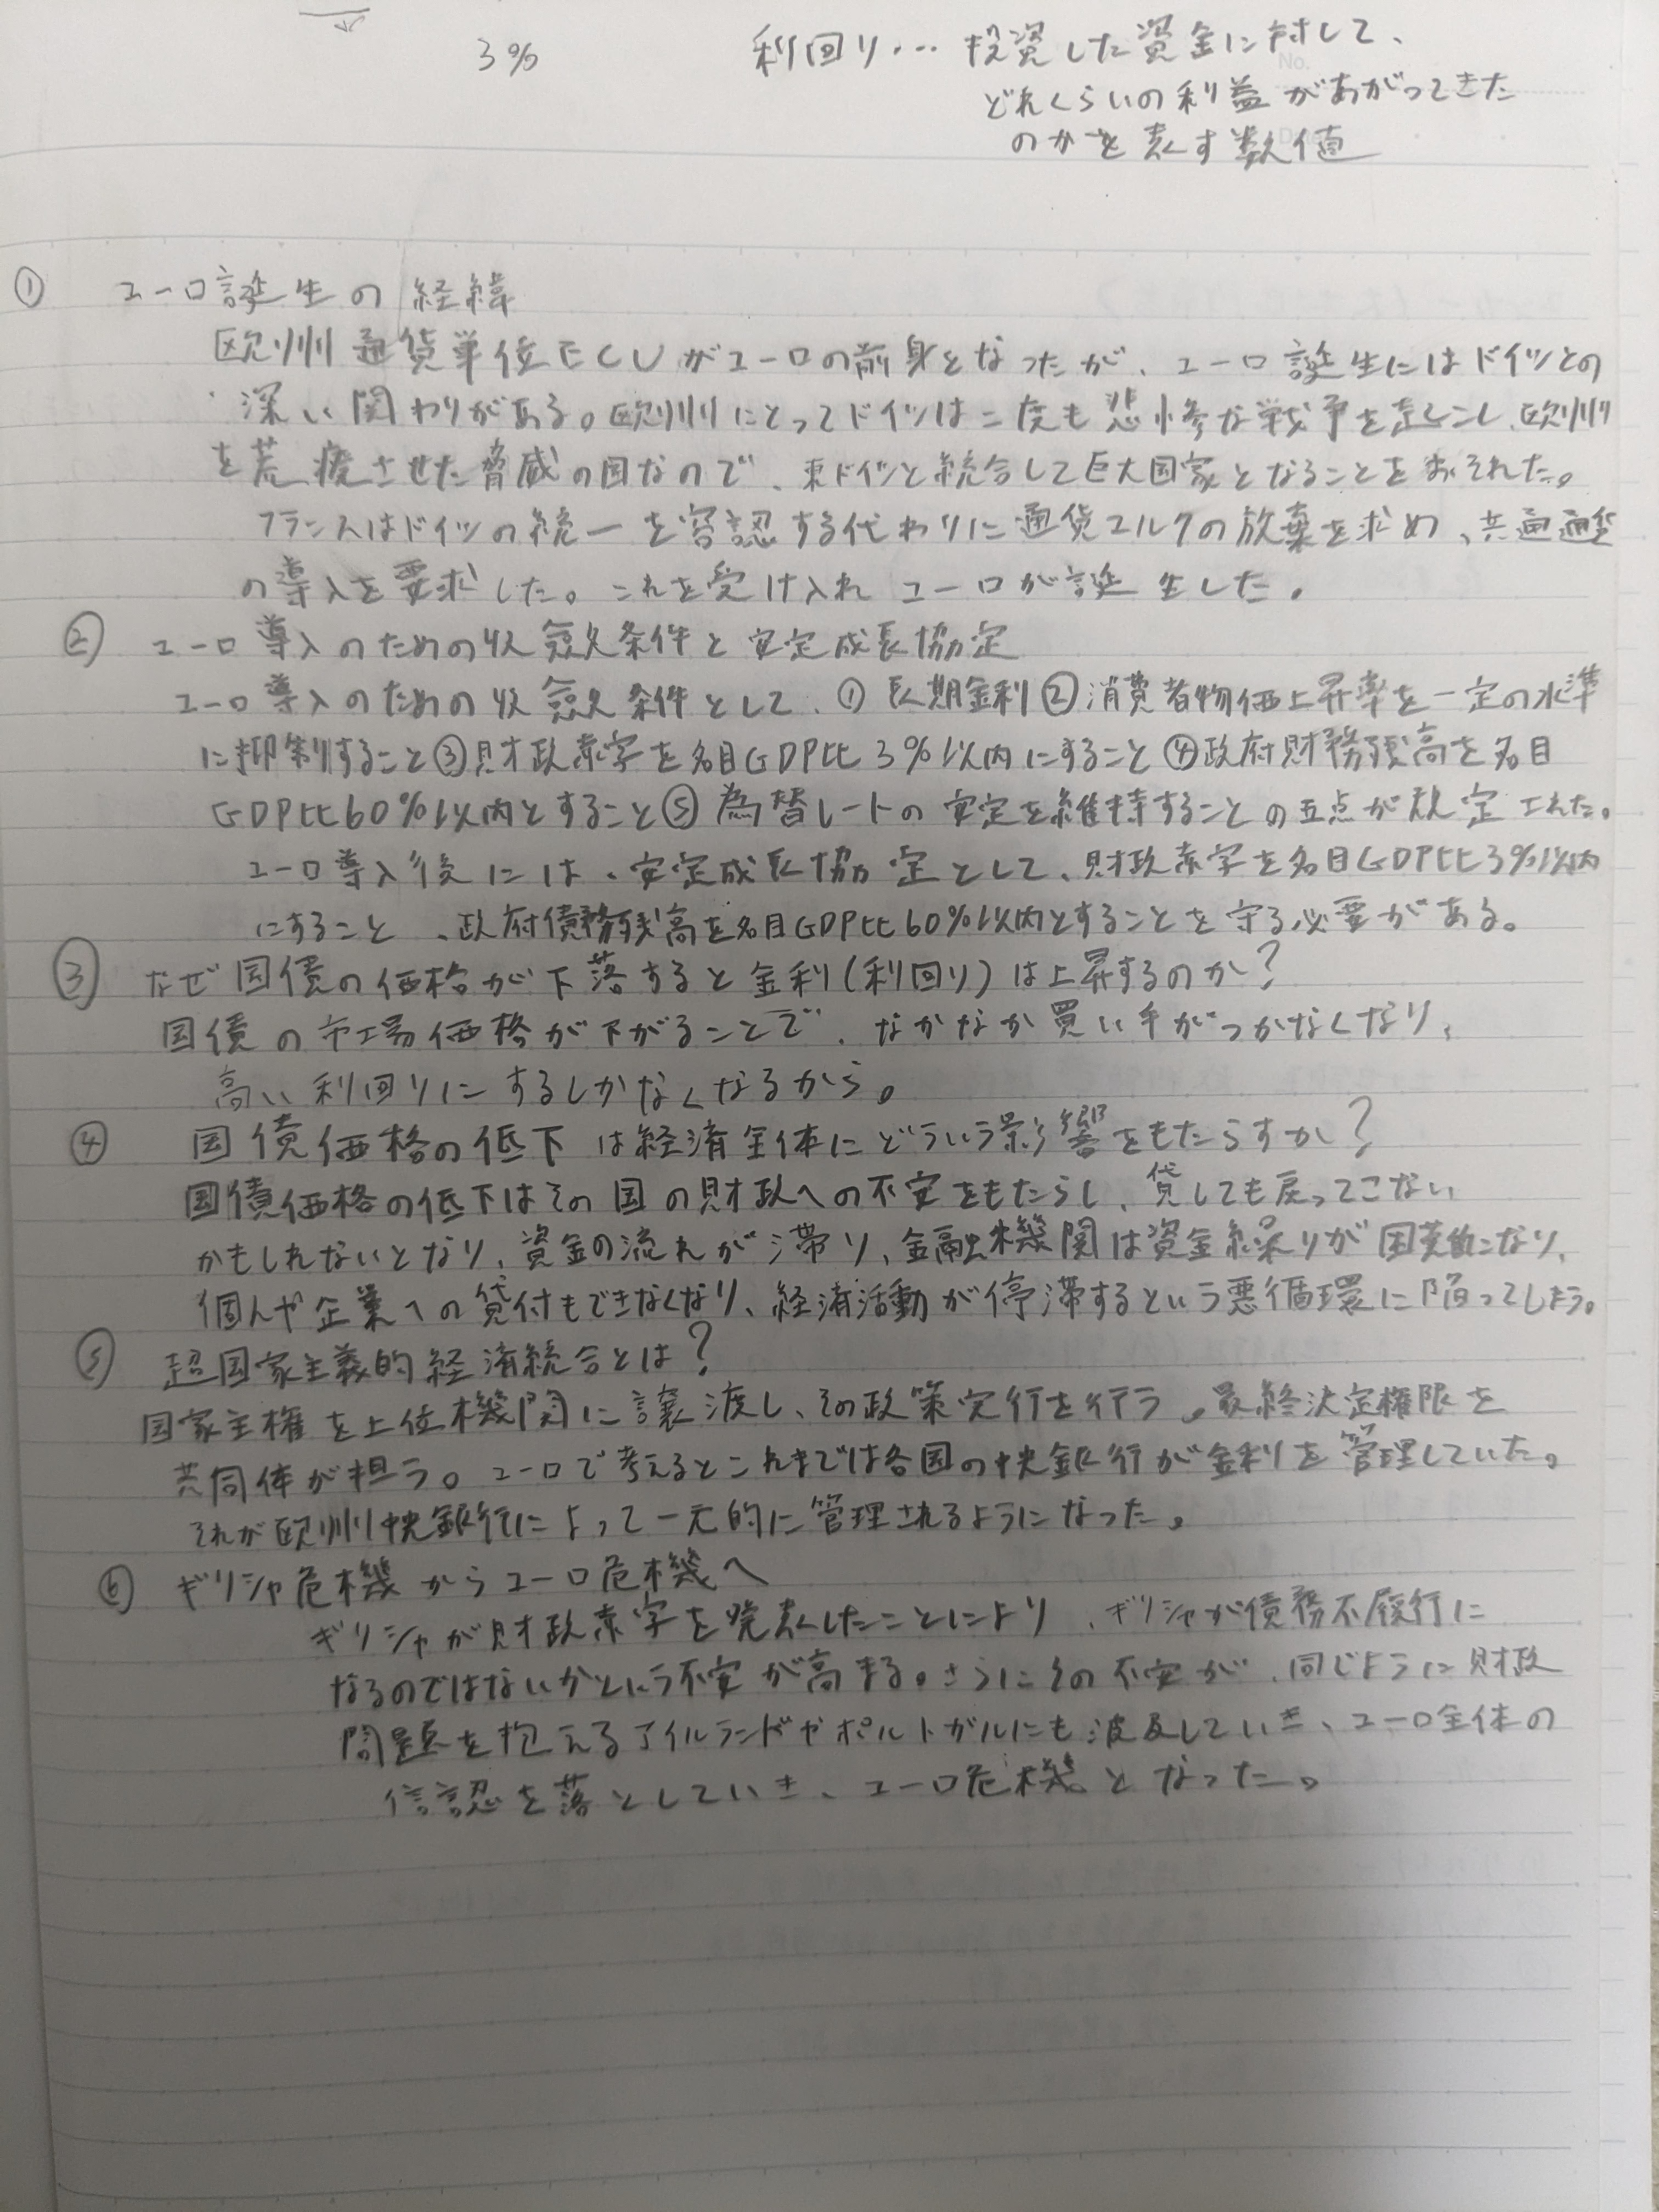 3%
利回り… 投資した資金に対して、
どれくらいの利益があがってきた
のかを表す数値
① ユーロ誕生の経緯
欧州通貨単位ECUがユーロの前身となったが、ユーロ誕生にはドイツとの
深い関わりがある。欧州にとってドイツは二度も悲惨な戦争を起こし、欧州
を荒廃させた脅威の国なので、東ドイツと統合して巨大国家となることをおそれた。
フランスはドイツの統一を容認する代わりに通貨マルクの放棄を求め、共通通貨
の導入を要求した。これを受け入れユーロが誕生した。
② ユーロ導入のための収斂条件と安定成長協定
ユーロ導入のための収斂条件として、①長期金利②消費者物価上昇率を一定の水準
に抑制すること③財政赤字を名目GDP比3%以内にすること④政府財務残高を名目
GDP比60%以内とすること⑤為替レートの安定を維持することの五点が規定された。
ユーロ導入後には、安定成長協定として、財政赤字を名目GDP比3%以内
にすること、政府債務残高を名目GDP比60%以内とすることを守る必要がある。
③ なぜ国債の価格が下落すると金利(利回り)は上昇するのか?
国債の市場価格が下がることで、なかなか買い手がつかなくなり、
高い利回りにするしかなくなるから。
④ 国債価格の低下は経済全体にどういう影響をもたらすか?
国債価格の低下はその国の財政への不安をもたらし、貸しても戻ってこない
かもしれないとなり、資金の流れが滞り、金融機関は資金繰りが困難になり、
個人や企業への貸付もできなくなり、経済活動が停滞するという悪循環に陥ってしまう。
⑤ 超国家主義的経済統合とは?
国家主権を上位機関に譲渡し、その政策実行を行う。最終決定権限を
共同体が担う。ユーロで考えるとこれまでは各国の中央銀行が金利を管理していた。
それが欧州中央銀行によって一元的に管理されるようになった。
⑥ ギリシャ危機からユーロ危機へ
ギリシャが財政赤字を発表したことにより、ギリシャが債務不履行に
なるのではないかという不安が高まる。さらにその不安が、同じように財政
問題を抱えるアイルランドやポルトガルにも波及していき、ユーロ全体の
信認を落としていき、ユーロ危機となった。